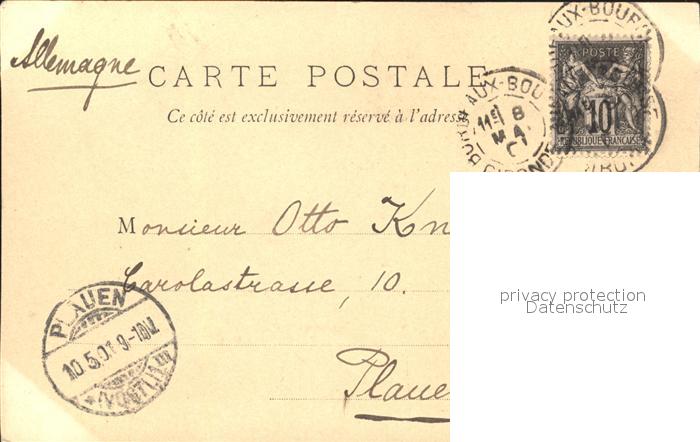 Allemagne
CARTE POSTALE
Ce côté est exclusivement réservé à l'adresse
POSTE
10
REPUBLIQUE FRANCAISE
AUX-BOU
8
MA
GIRONDE
Monsieur Otto Kn
Carolastrasse, 10.
Plaue
PLAUEN
10.5.01 9-10V.
(VOGTL)
privacy protection
Datenschutz